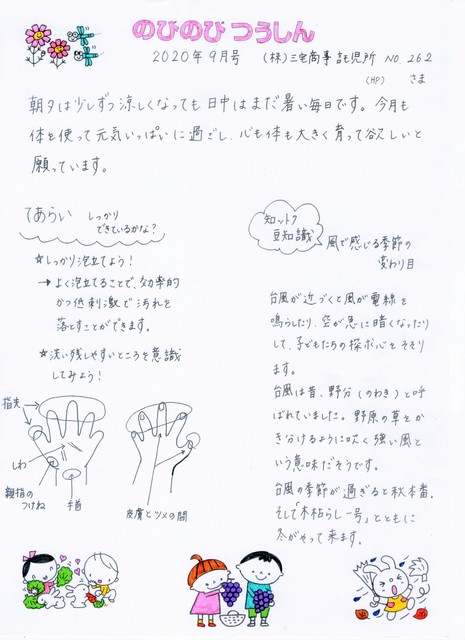 のびのび つうしん
2020年9月号 (株)三宅商事 託児所 NO.262
(HP) さま
朝夕は少しずつ涼しくなっても日中はまだ暑い毎日です。今月も
体を使って元気いっぱいに過ごし、心も体も大きく育って欲しいと
願っています。
てあらい しっかり
できているかな?
☆しっかり泡立てよう!
→よく泡立てることで、効率的
かつ低刺激で汚れを
落とすことができます。
☆洗い残しやすいところを意識
してみよう!
指先
しわ
親指の
つけね
手首
皮膚とツメの間
知っトク
豆知識
風で感じる季節の
変わり目
台風が近づくと風が電線を
鳴らしたり、空が急に暗くなったり
して、子どもたちの探求心をそそり
ます。
台風は昔、野分(のわき)と呼
ばれていました。野原の草をか
き分けるように吹く強い風と
いう意味だそうです。
台風の季節が過ぎると秋本番。
そして「木枯らし一号」とともに
冬がやって来ます。